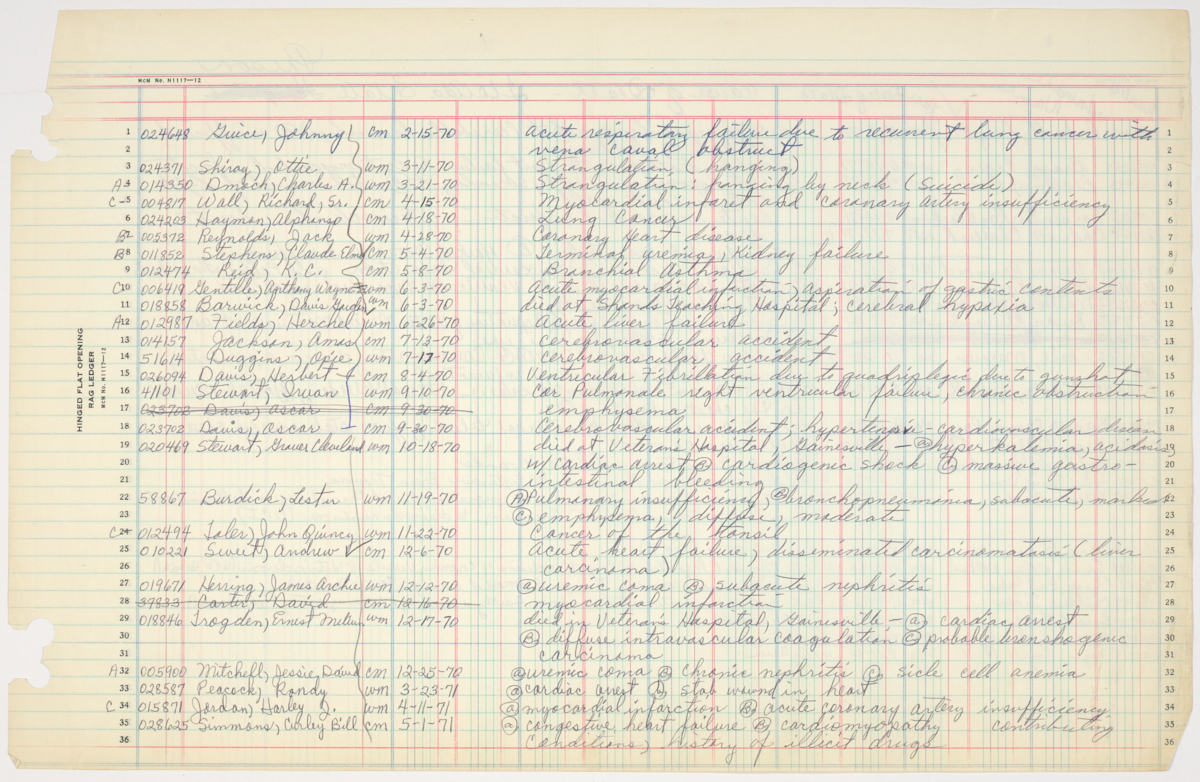 MCM No. H1117—12
HINGED FLAT OPENING
RAG LEDGER
MCM No. H1117—12
1 024648 Grice, Johnny cm 2-15-70 Acute respiratory failure due to recurrent lung cancer with 1
2 vena caval obstruct 2
3 024371 Shiray, Ottie wm 3-11-70 Strangulation (hanging) 3
A 4 014350 Dmoch, Charles A. wm 3-21-70 Strangulation: hanging by neck (Suicide) 4
C-5 004817 Wall, Richard, Sr. cm 4-15-70 Myocardial infarct and coronary artery insufficiency 5
6 024203 Haymon, Alphonso cm 4-18-70 Lung Cancer 6
B 7 005372 Reynolds, Jack wm 4-28-70 Coronary heart disease 7
B 8 011852 Stephens, Claude Elmo cm 5-4-70 Terminal uremia, Kidney failure 8
9 012474 Reid, K. C. cm 5-8-70 Branchial Asthma 9
C 10 006419 Gentile, Anthony Wayne wm 6-3-70 acute myocardial infarction, aspiration of gastric contents 10
11 018858 Barwick, Davis wm 6-3-70 died at Shands Teaching Hospital; cerebral hypoxia 11
A 12 012987 Fields, Herchel wm 6-26-70 Acute liver failure 12
13 014157 Jackson, Amos cm 7-13-70 cerebrovascular accident 13
14 51614 Duggins, Opie wm 7-17-70 cerebrovascular accident 14
15 026094 Davis, Hesbert cm 8-4-70 Ventricular Fibrillation due to quadriplegic due to gunshot 15
16 41101 Stewart, Irwan wm 9-10-70 Cor Pulmonale right ventricular failure, chronic obstruction 16
17 023702 Davis, Oscar cm 9-30-70 emphysema 17
18 023702 Davis, Oscar cm 9-30-70 Cerebrovascular accident; hypertensive-cardiovascular disease 18
19 020469 Stewart, Grover Cleveland wm 10-18-70 died at Veterans Hospital, Gainesville — (a) hyperkalemia, acidosis, 19
20 w/ cardiac arrest (B) cardiogenic shock (C) massive gastro- 20
21 intestinal bleeding 21
22 58867 Burdick, Lester wm 11-19-70 (A) Pulmonary insufficiency, (B) bronchopneumonia, subacute, marked 22
23 (C) emphysema, diffuse, moderate 23
C 24 012494 Toler, John Quincy wm 11-22-70 Cancer of the tonsil 24
25 010221 Swett, Andrew cm 12-6-70 Acute heart failure, disseminated carcinomatosis (liver 25
26 carcinoma) 26
27 019671 Herring, James Archie wm 12-12-70 (a) uremic coma (B) subacute nephritis 27
28 37833 Carter, David cm 12-16-70 myocardial infarction 28
29 018846 Trogden, Ernest wm 12-17-70 died in Veteran's Hospital, Gainesville - (a) cardiac arrest 29
30 (B) diffuse intravascular coagulation (C) probable bronchogenic 30
31 carcinoma 31
A 32 005900 Mitchell, Jessie David cm 12-25-70 (a) uremic coma (B) chronic nephritis (C) sicle cell anemia 32
33 028587 Peacock, Randy wm 3-23-71 (a) cardiac arrest (b) stab wound in heart 33
C 34 015871 Jordan, Harley J. wm 4-11-71 (a) myocardial infarction (B) acute coronary artery insufficiency 34
35 028625 Simmons, Corley Bill cm 5-1-71 (a) congestive heart failure (B) cardiomyopathy contributing 35
36 conditions, history of illicit drugs 36